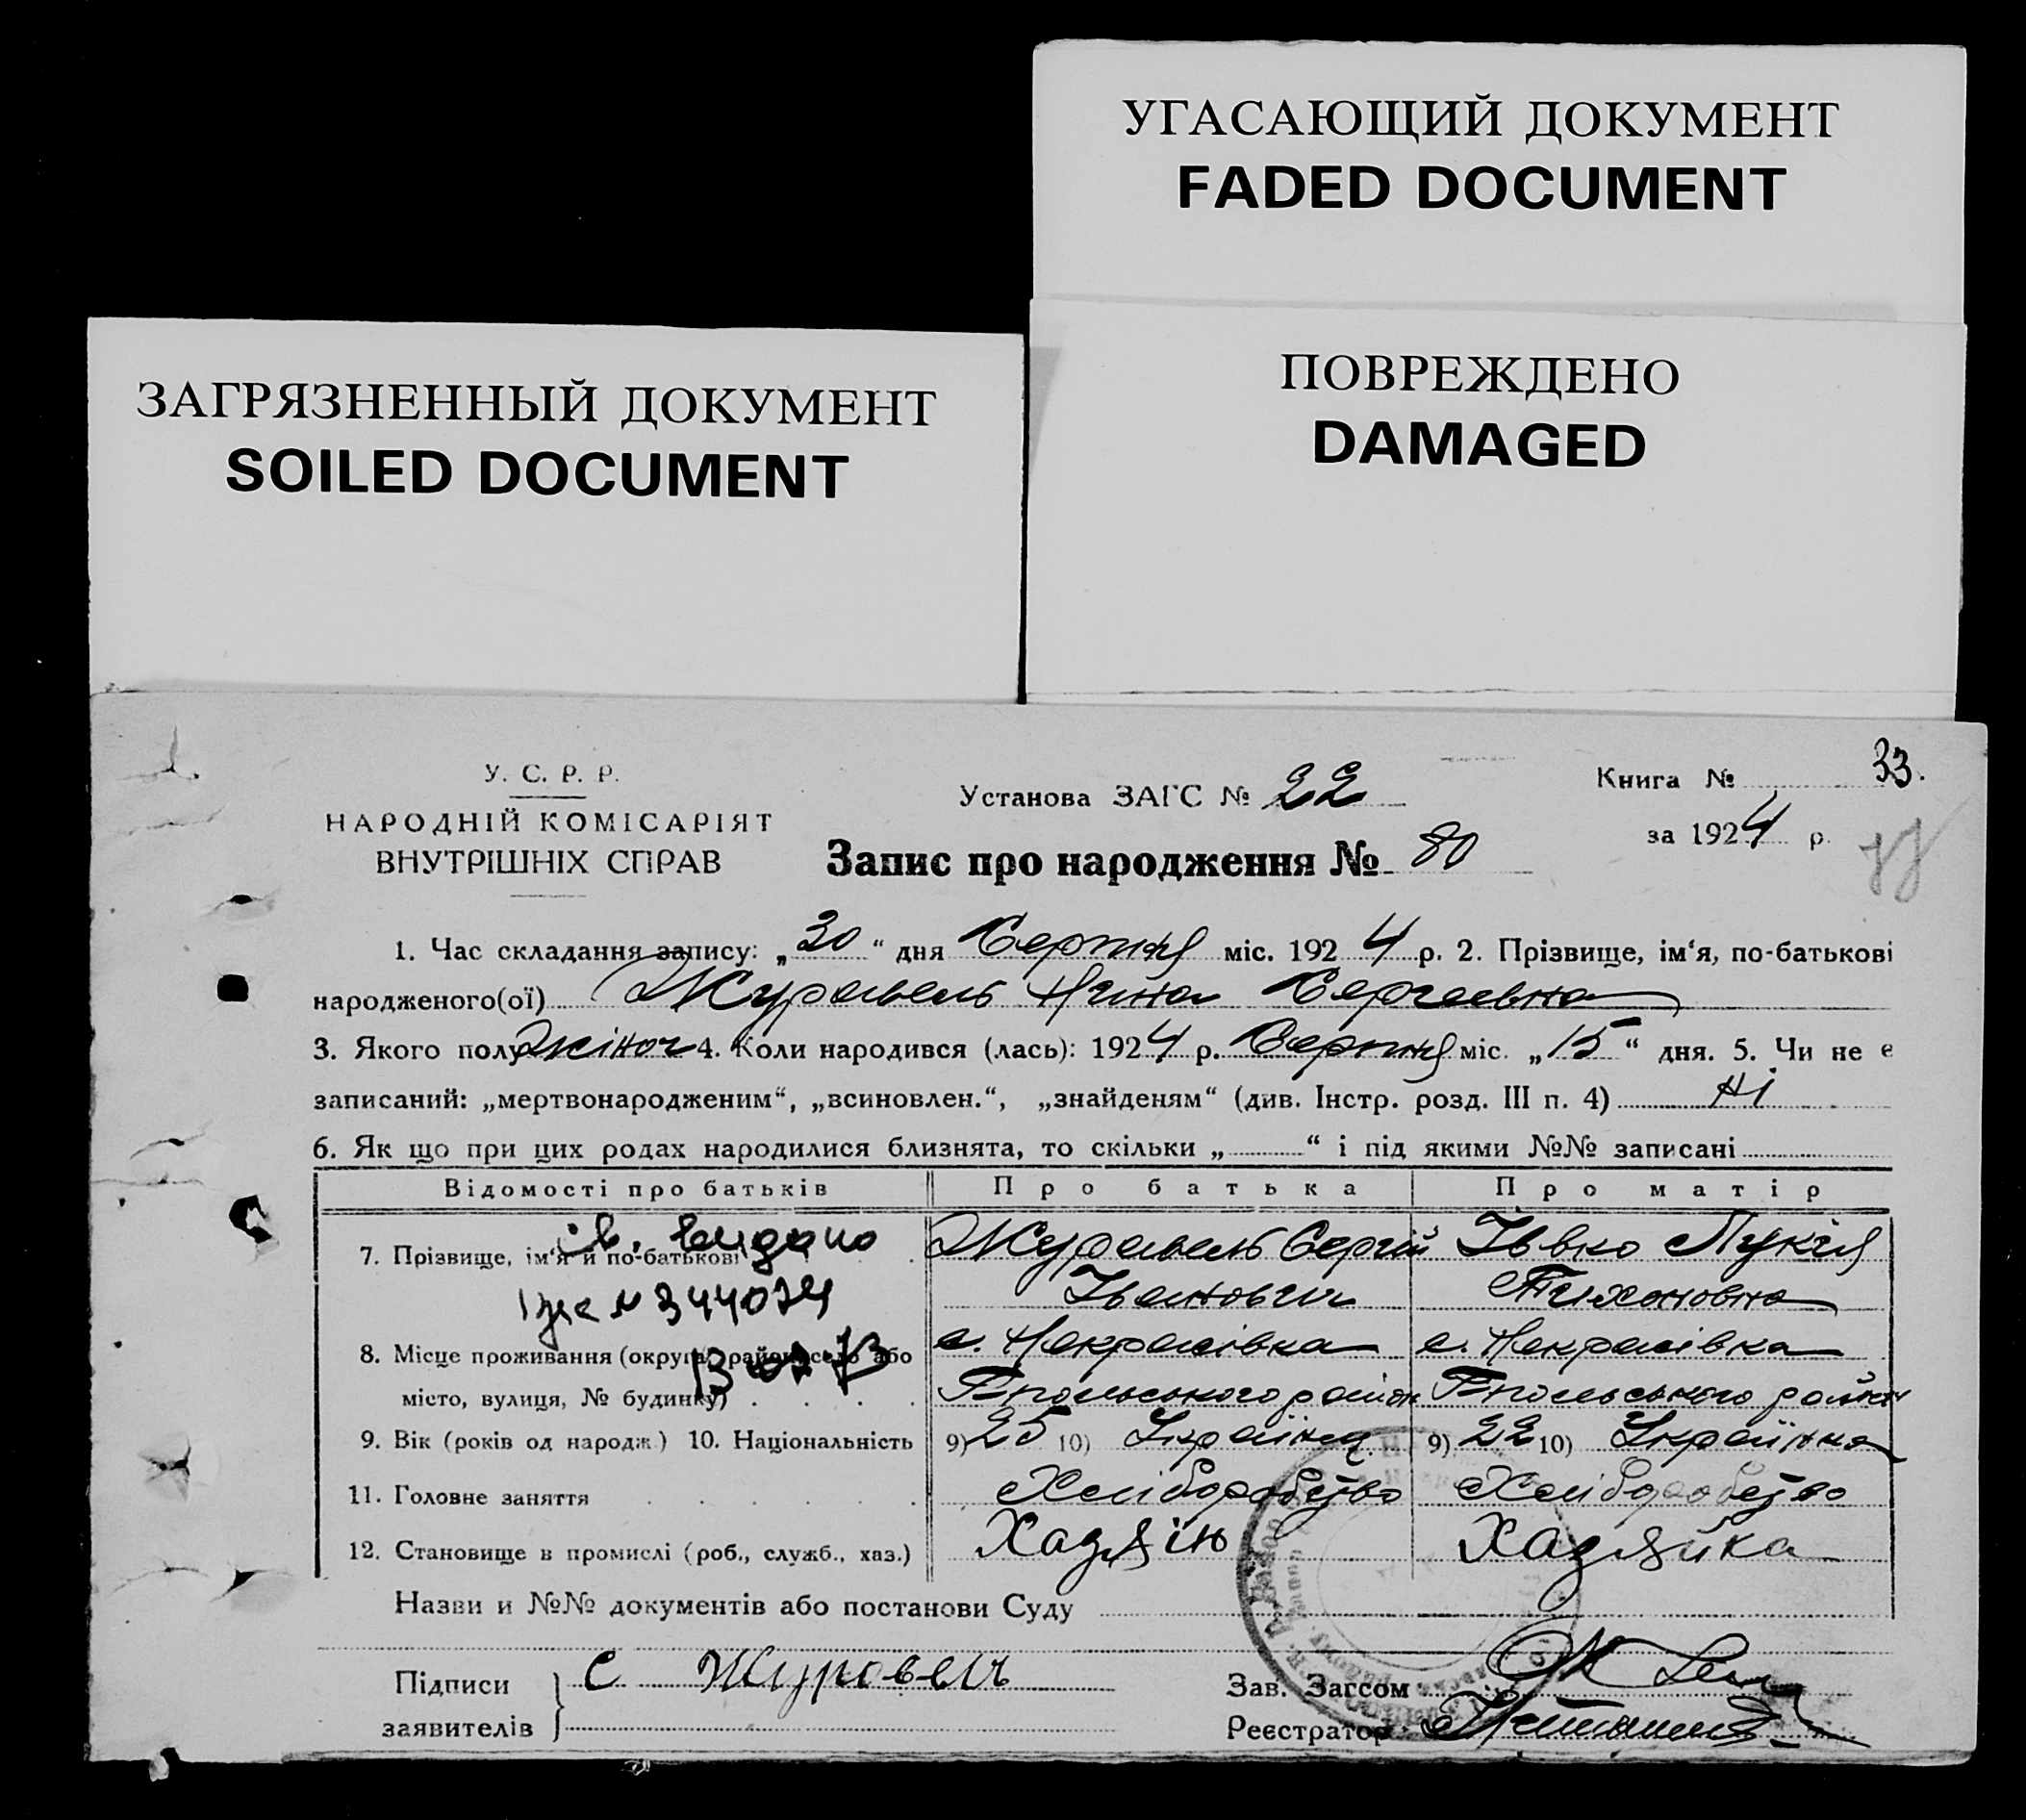 УГАСАЮЩИЙ ДОКУМЕНТ
FADED DOCUMENT
ЗАГРЯЗНЕННЫЙ ДОКУМЕНТ
SOILED DOCUMENT
ПОВРЕЖДЕНО
DAMAGED
У. С. Р. Р.
НАРОДНІЙ КОМІСАРІЯТ
ВНУТРІШНІХ СПРАВ
Установа ЗАГС № 22
Запис про народження № 80
Книга № 33.
за 1924 р.
1. Час складання запису: „30“ дня Серпня міс. 1924 р. 2. Прізвище, ім‘я, по-батькові
народженого(ої) Журавель Нина Сергеевна
3. Якого полу жіноч 4. Коли народився (лась): 1924 р. Серпня міс. „15“ дня. 5. Чи не є
записаний: „мертвонародженим“, „всиновлен.“, „знайденям“ (див. Інстр. розд. III п. 4) Ні
6. Як що при цих родах народилися близнята, то скільки „ “ і під якими №№ записані
Відомості про батьків Про батька Про матір
св. видано
7. Прізвище, ім‘я й по-батькові Журавель Сергій Івко Лукія
Іванович Тихоновна
№ 344074
8. Місце проживання (округа, район, село або с. Некрасівка с. Некрасівка
місто, вулиця, № будинку) району району
9. Вік (років од народж.) 10. Національність 9) 25 10) Українец 9) 22 10) Українка
11. Головне заняття Хліборобство Хліборобство
12. Становище в промислі (роб., служб., хаз.) Хазяін Хазяйка
Назви и №№ документів або постанови Суду
Підписи С Журовель
заявителів
Зав. Загсом
Реєстратор